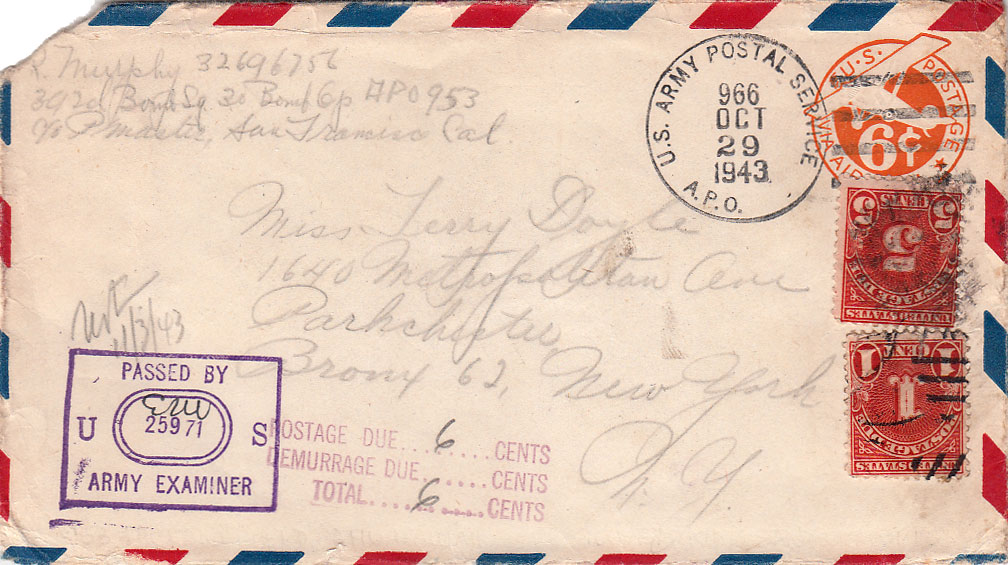 R. Murphy 32696756
392d Bomb Sq. 30 Bomb Gp APO 953
c/o P. Master, San Francisco Cal.
U.S. ARMY POSTAL SERVICE
966
OCT
29
1943
A.P.O.
U.S. POSTAGE
6¢
VIA AIR
5 CENTS 5
5
POSTAGE DUE
UNITED STATES
1 CENT 1
1
POSTAGE DUE
UNITED STATES
Miss Terry Doyle
1640 Metropolitan Ave
Parkchester
Bronx 62, New York
N.Y.
11/3/43
PASSED BY
U 25971 S
ARMY EXAMINER
POSTAGE DUE....6....CENTS
DEMURRAGE DUE......CENTS
TOTAL.....6.....CENTS